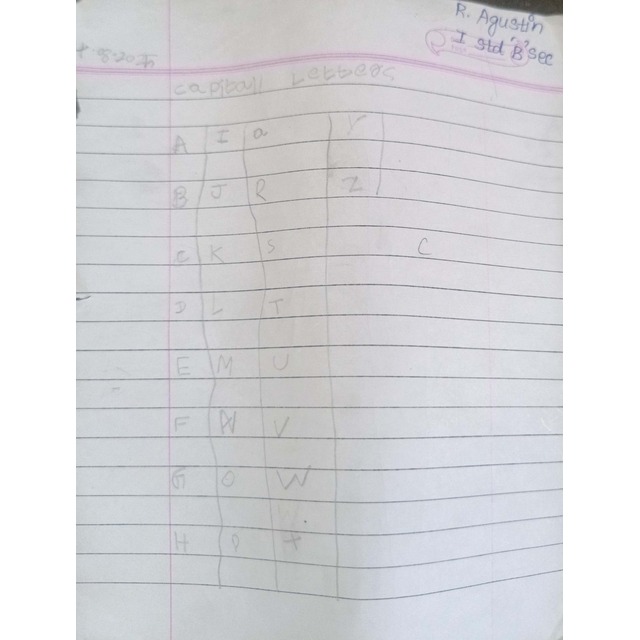 R. Agustin
I std 'B' sec
capitall Letters
A I a Y
B J R Z
C K S C
D L T
E M U
F N V
G O W
H P X